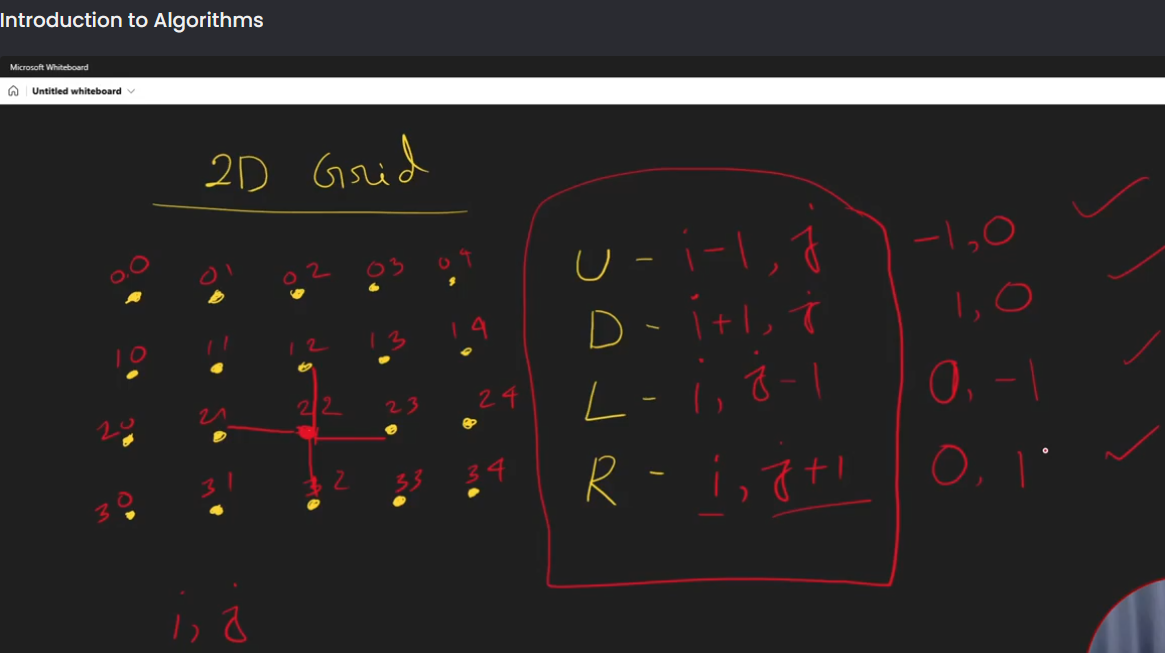 Introduction to Algorithms
Microsoft Whiteboard
Untitled whiteboard
2D Grid
00 01 02 03 04
10 11 12 13 14
20 21 22 23 24
30 31 32 33 34
i, j
U - i-1, j -1, 0
D - i+1, j 1, 0
L - i, j-1 0, -1
R - i, j+1 0, 1